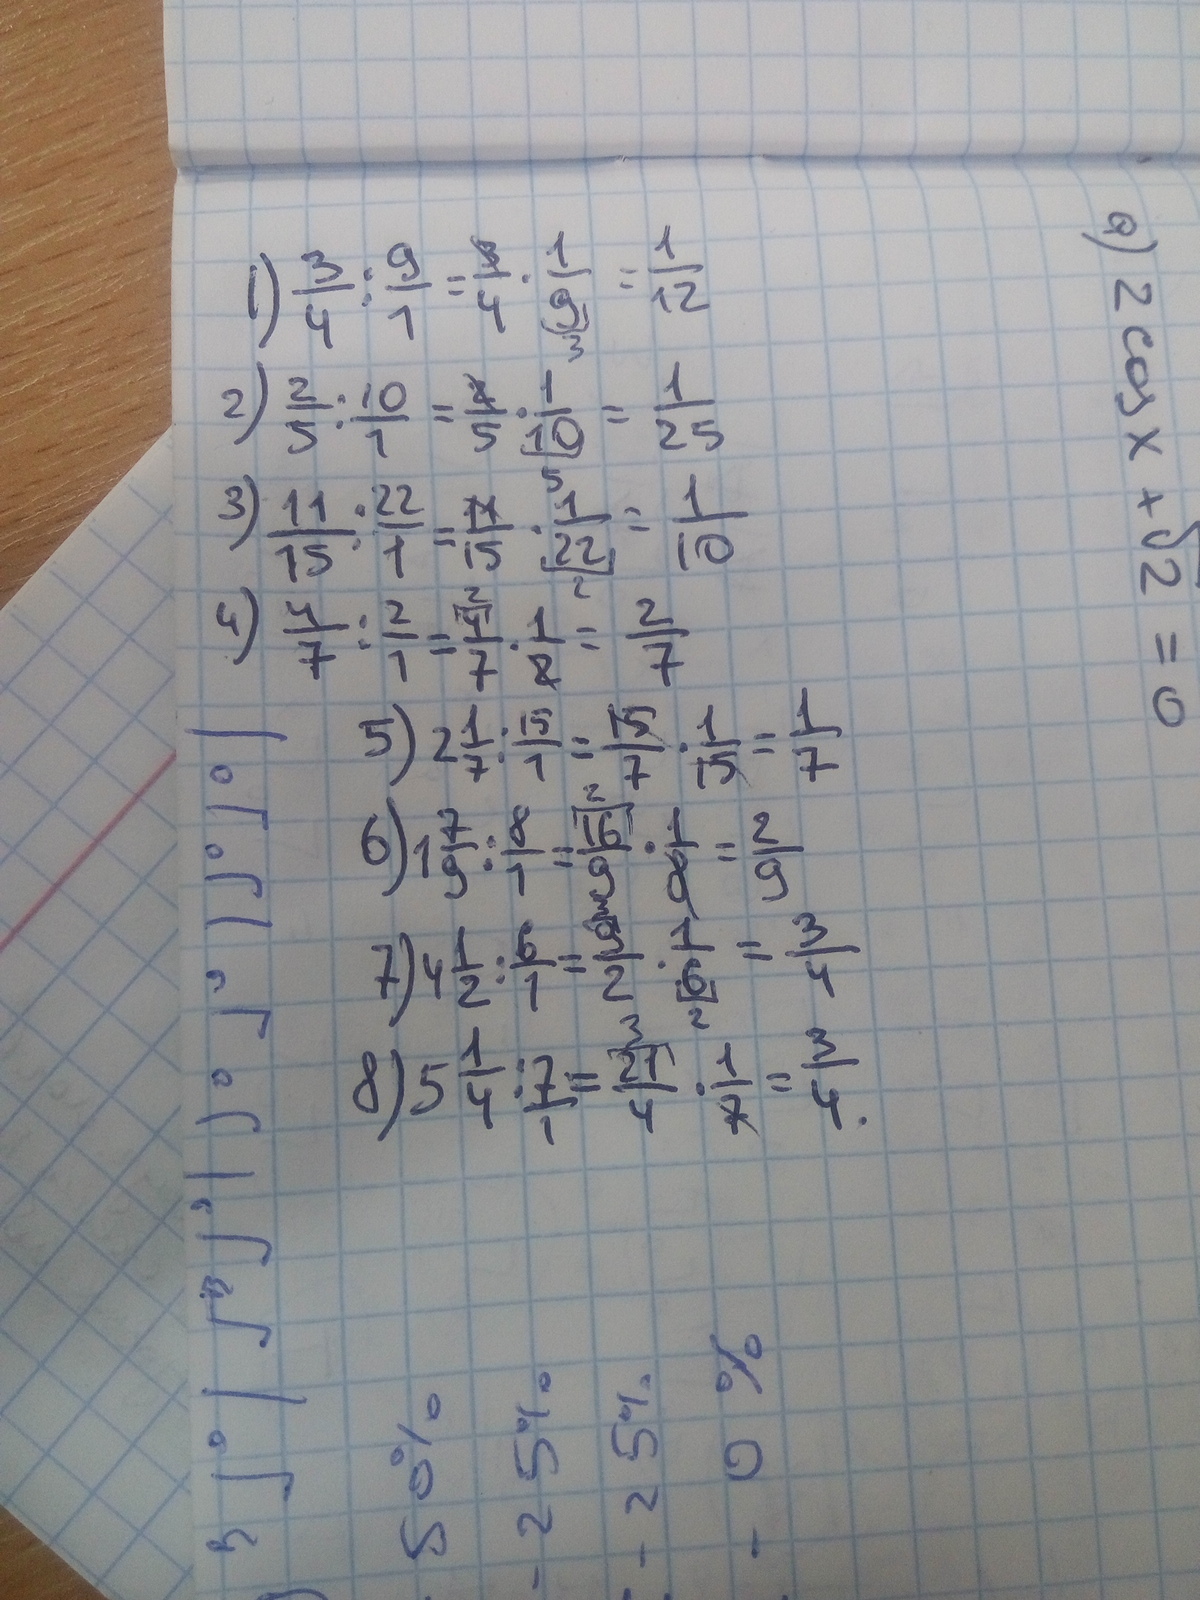 1) 3/4 : 9/1 = 3/4 · 1/9 3 = 1/12
2) 2/5 : 10/1 = 2/5 · 1/10 5 = 1/25
3) 11/15 : 22/1 = 11/15 · 1/22 2 = 1/10
4) 4/7 : 2/1 = 4/7 2 · 1/2 = 2/7
5) 2 1/7 : 15/1 = 15/7 · 1/15 = 1/7
6) 1 7/9 : 8/1 = 16/9 2 · 1/8 = 2/9
7) 4 1/2 : 6/1 = 9/2 3 · 1/6 2 = 3/4
8) 5 1/4 : 7/1 = 21/4 3 · 1/7 = 3/4.
а) 2 cos x + √2 = 0
50%
- 25%
- 25%
- 0%